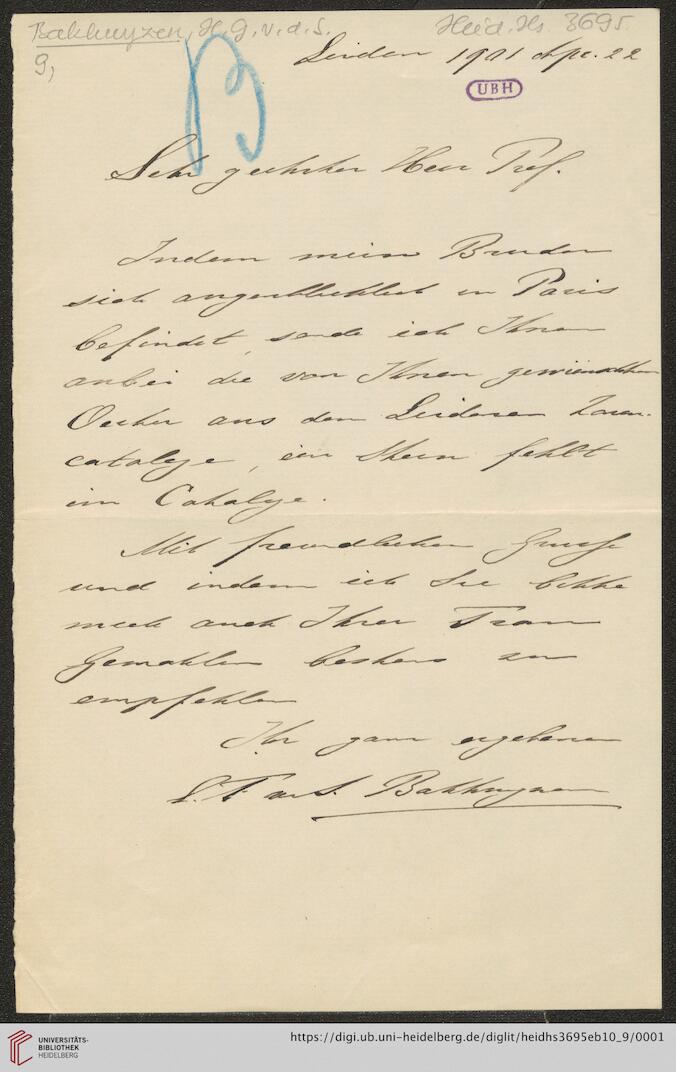 Bakhuyzen, H. G. v. d. S.
Heid. Hs. 3695
9,
Leiden 1901 Apr. 22
UBH
Sehr geehrter Herr Prof.
Indem mein Bruder
sich augenblicklich in Paris
befindet, sende ich Ihnen
anbei die von Ihnen gewünschten
aus dem Leidener Zonen-
cataloge, ein Stern fehlt
im Cataloge.
Mit freundlichem Grusse
und indem ich Sie bitte
mich auch Ihrer Frau
Gemahlin bestens zu
empfehlen
Ihr ganz ergebener
E. F. v. d. S. Bakhuyzen
UNIVERSITÄTS-
BIBLIOTHEK
HEIDELBERG
https://digi.ub.uni-heidelberg.de/diglit/heidhs3695eb10_9/0001